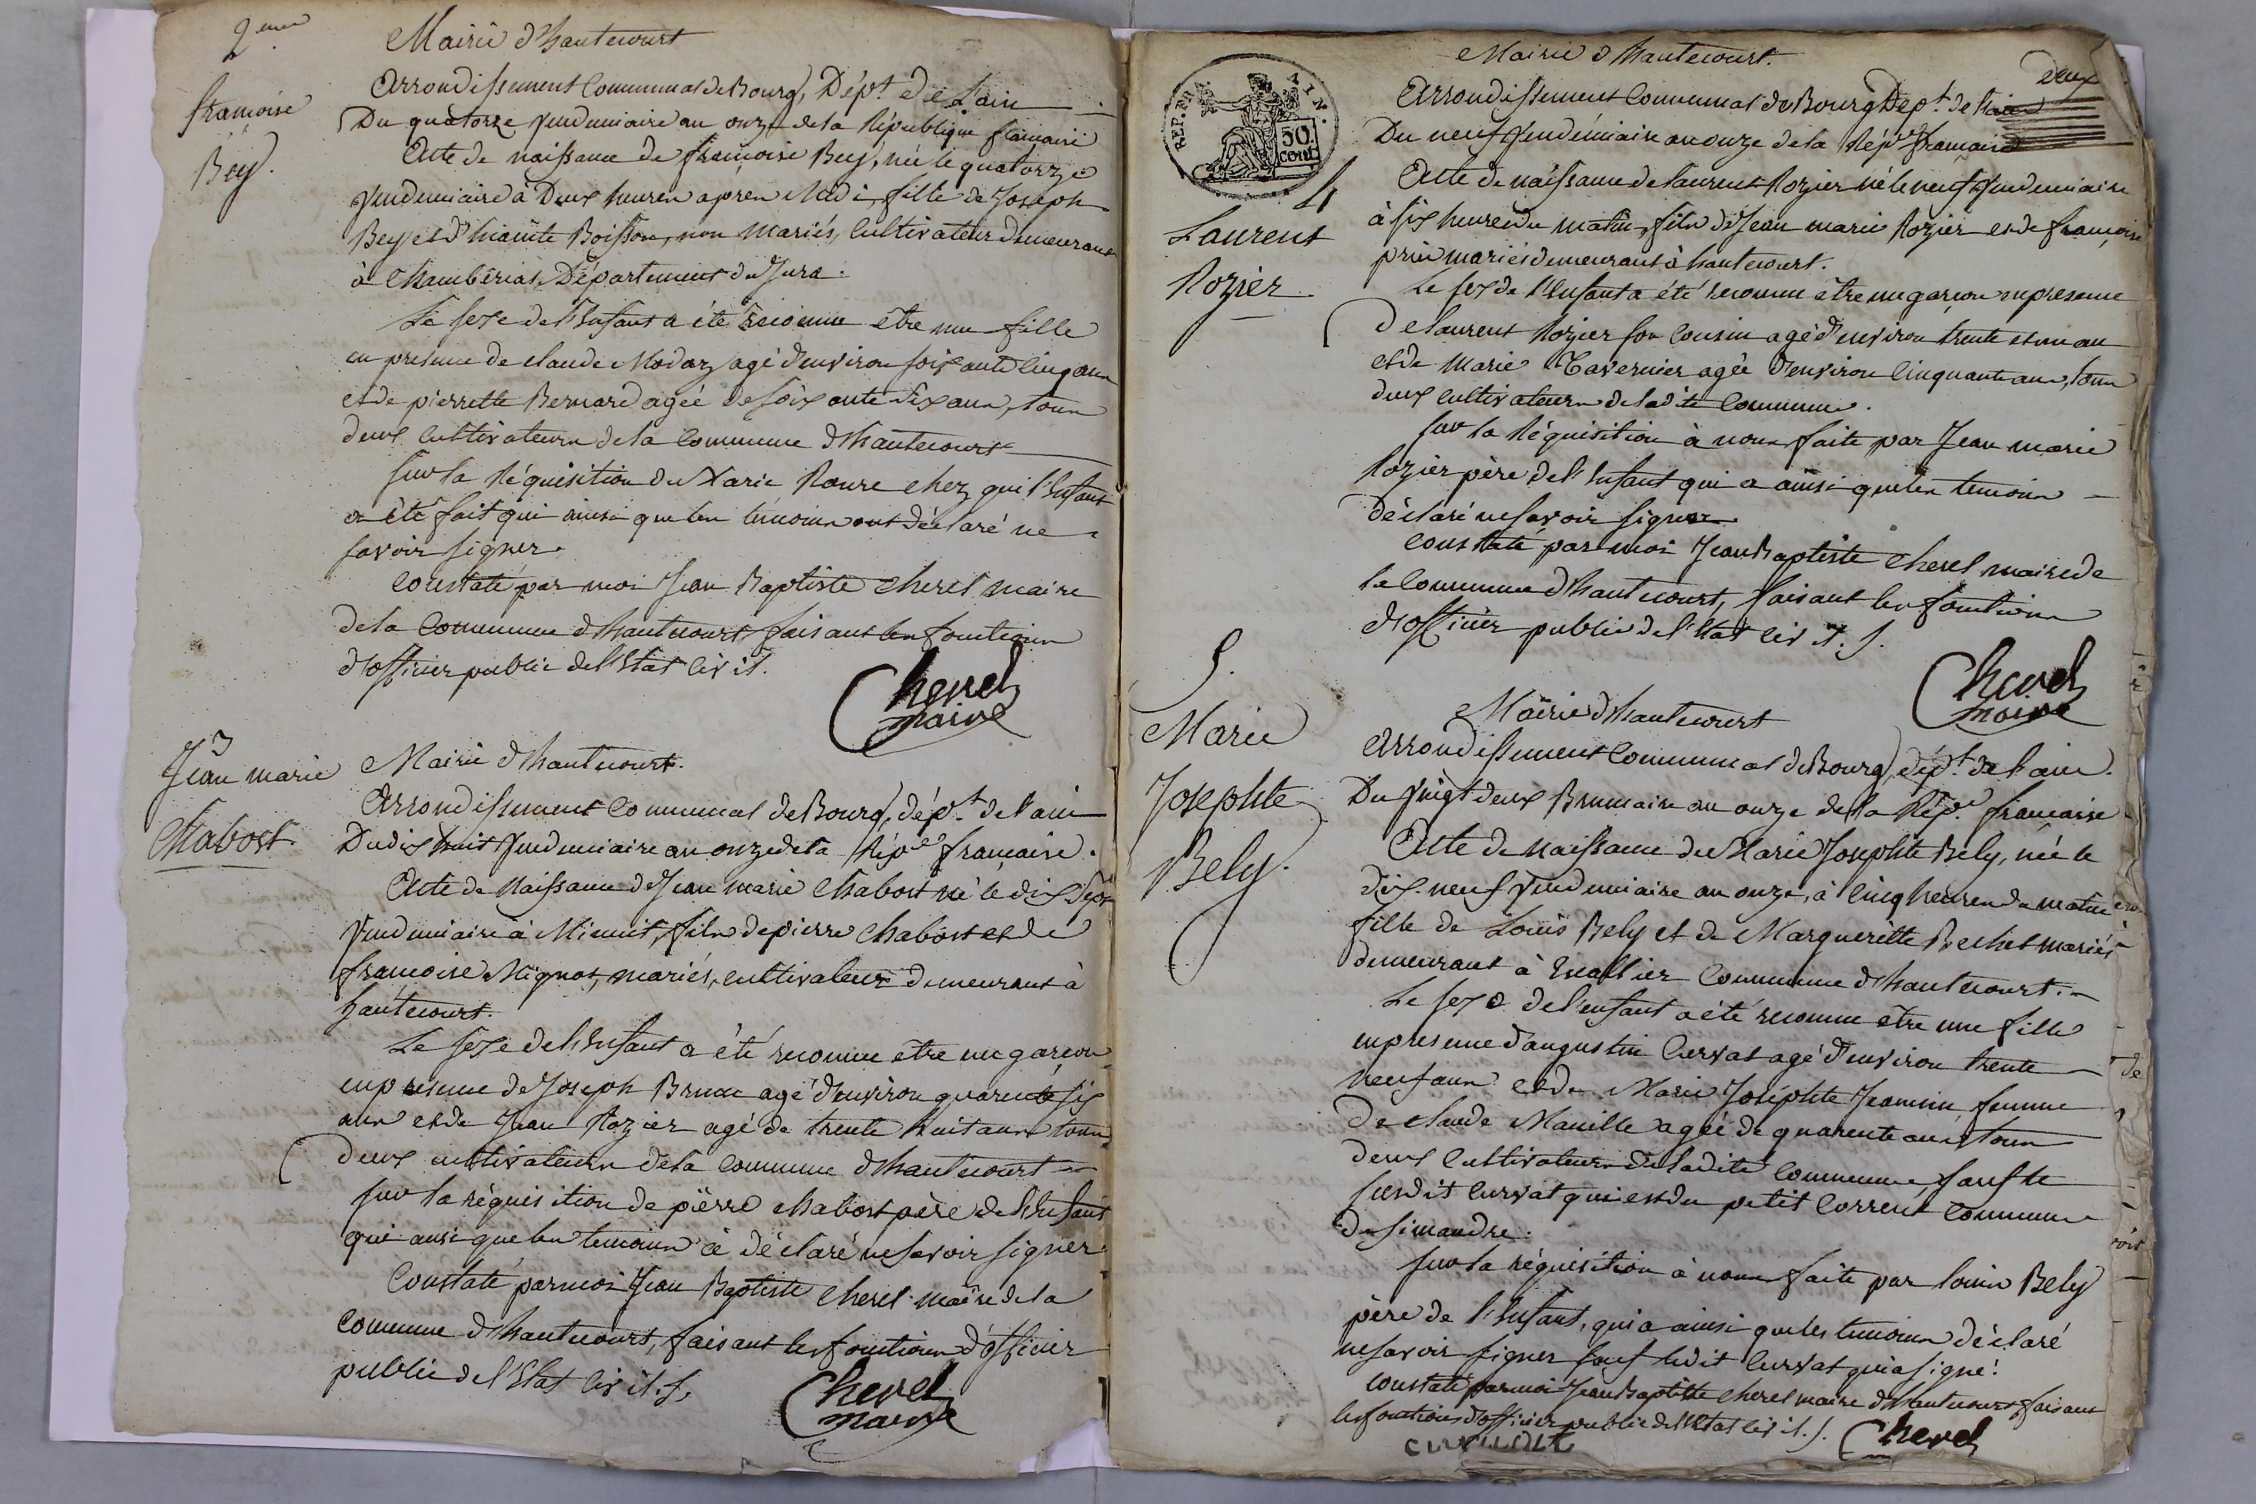 2eme
françoise
Bey.
Mairie d'hautecourt
Arrondissement Communal de Bourg, Dépt. de Lain
Du quatorze Vendemiaire an onze de la République francaise
Acte de naissance de françoise Bey, née le quatorze
Vendemiaire à Deux heures après Midi, fille de Joseph
Bey et d' Boisson, non mariés, Cultivateur demeurant
à Chambérias Département du Jura.
Le sexe de l'Enfant a été reconnu être une fille
en presence de claude Modaz agé d'environ soixante Cinq ans
et de pierrette Bernard agée de soixante dix ans, tous
deux Cultivateurs de la Commune d'hautecourt
Sur la Réquisition de Marie Roure chez qui l'Enfant
a été fait qui ainsi que les témoins ont déclaré ne
savoir signer.
Constaté par moi Jean Baptiste Cherel maire
de la Commune d'hautecourt faisant les fonctions
d'officier public de l'Etat Civil.
Cherel
maire
3
Jean marie
Chabost
Mairie d'hautecourt.
Arrondissement Communal de Bourg, dépt. de l'ain
Du dix huit Vendemiaire an onze de la Répue francaise.
Acte de Naissance de Jean marie Chabost né le dix sept
Vendemiaire à Minuit, fils de pierre Chabost et de
francoise Mignot, mariés, cultivateur demeurant à
hautecourt.
Le sexe de l'Enfant a été reconnu être un garçon
en presence de Joseph Brun agé d'environ quarente six
ans et de Jean Rozier agé de trente huit ans tous
deux cultivateurs de la commune d'hautecourt
Sur la réquisition de pierre Chabost père de l'Enfant
qui ainsi que les temoins a déclaré ne savoir signer
Constaté par moi Jean Baptiste Cherel maire de la
Commune d'hautecourt, faisant les fonctions d'officier
public de l'Etat Civil. f.
Cherel
maire
REP. FRA. AIN.
50 cent
deux
4
Laurent
Rozier
Mairie d'hautecourt.
Arrondissement Communal de Bourg Dépt. de l'ain
Du neuf Vendémiaire an onze de la Répue francaise
Acte de naissance de laurent Rozier né le neuf Vendemiaire
à six heures du matin, fils de Jean marie Rozier et de françoise
prin mariés demeurant à hautecourt.
Le sex de l'Enfant a été reconnu être un garcon en presence
De laurent Rozier son Cousin agé d'environ trente et un an
et de marie Tavernier agée d'environ Cinquante ans, tous
deux cultivateurs de ladite Commune.
Sur la Réquisition à nous faite par Jean marie
Rozier père de l'Enfant qui a ainsi que les temoins
Déclaré ne savoir signer
Constaté par moi Jean Baptiste Cherel maire de
la Commune d'hautecourt, faisant les fonctions
d'officier public de l'Etat Civil. f.
Cherel
maire
5.
Marie
Josephte
Bely.
Mairie d'hautecourt
Arrondissement Communal de Bourg, dépt. de l'ain.
Du Vingt deux Brumaire an onze de la Répe. francaise
Acte de Naissance de Marie Josephte Bely, née le
dix-neuf Vendemiaire an onze, à Cinq heures du matin
fille de Louis Bely et de Marguerite Bechet mariés
demeurant à Commune d'hautecourt.
Le sexe de l'enfant a été reconnu être une fille
en presence d'augustin Curvat agé d'environ trente
neuf ans et de Marie Joséphte Jeannin femme
De claude Manille agée de quarente ans, tous
deux Cultivateurs de ladite Commune, sauf le
susdit Curvat qui est du petit Corrent Commune
de Simandre.
Sur la réquisition à nous faite par louis Bely
père de l'Enfant, qui a ainsi que les temoins déclaré
ne savoir signer sauf ledit Curvat qui a signé.
Constaté par moi Jean Baptiste Cherel maire d'hautecourt faisant
les fonctions d'officier public de l'Etat Civil. f.
Cherel